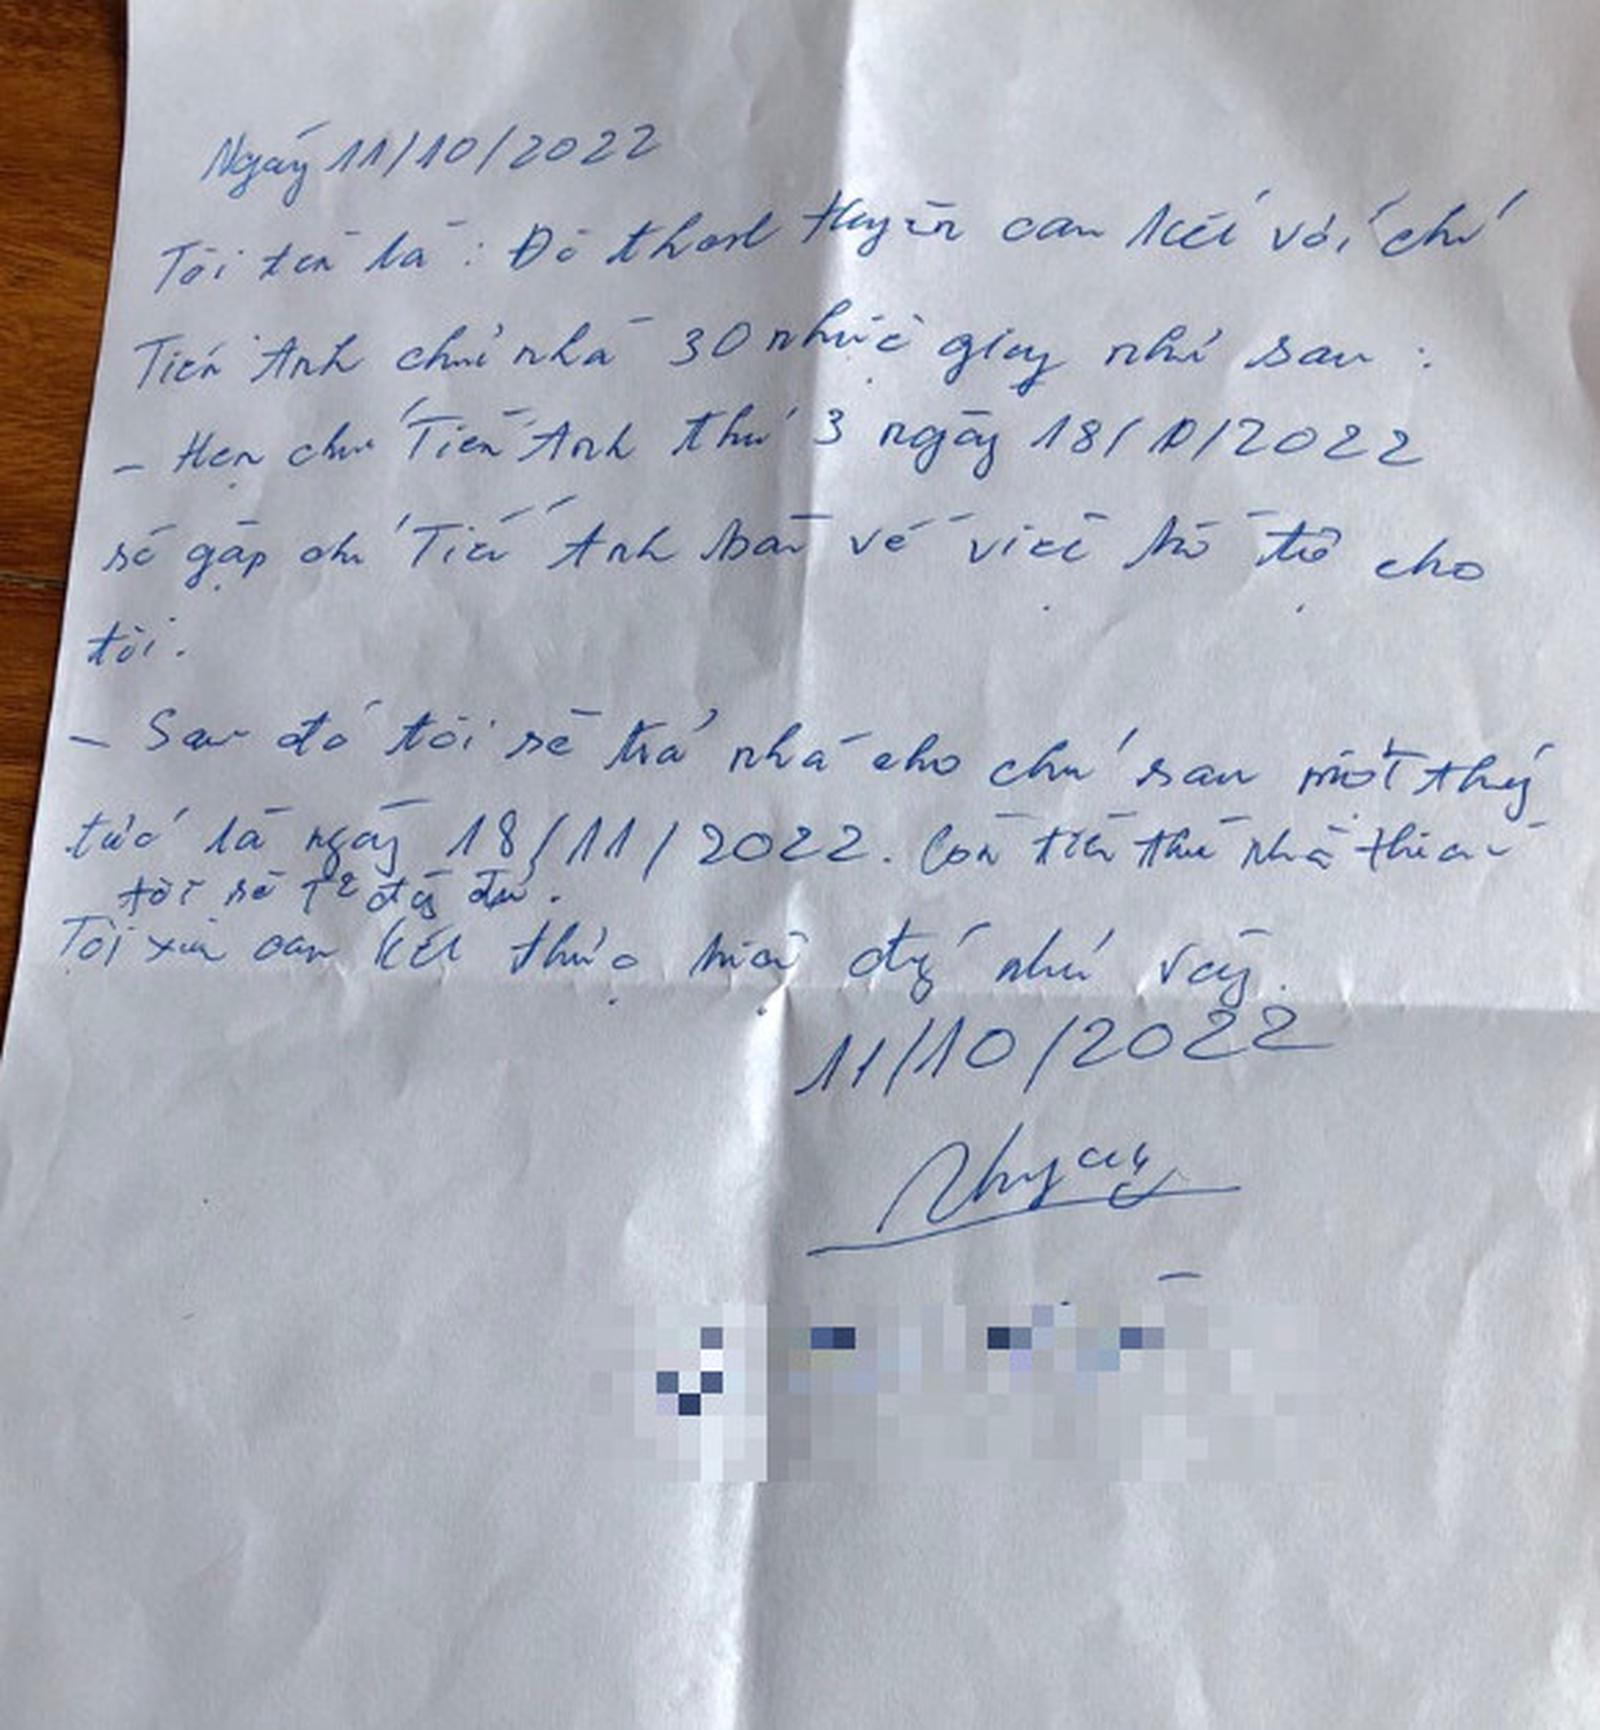 Ngày 11/10/2022
Tôi tên là: Đỗ thanh Huyền cam kết với chú
Tiến Anh chủ nhà 30 như sau:
- Hẹn chú Tiến Anh thứ 3 ngày 18/10/2022
sẽ gặp chú Tiến Anh bàn về việc hỗ trợ cho
tôi.
- Sau đó tôi sẽ trả nhà cho chú sau một tháng
tức là ngày 18/11/2022. Còn tiền thuê nhà thiếu
tôi sẽ trả đầy đủ.
Tôi xin cam kết thực hiện đúng như vậy.
11/10/2022